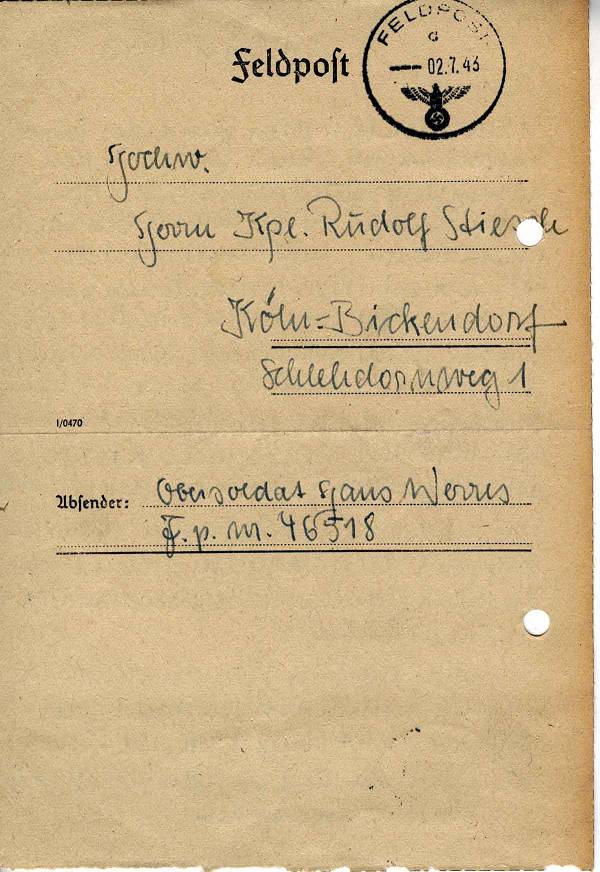 Feldpost
FELDPOST
d
02.7.43
Hochw.
Herrn Kpl. Rudolf
Köln-Bickendorf
Schlehdornweg 1
1/0470
Absender: Obersoldat Hans Werres
F.p.nr. 46518